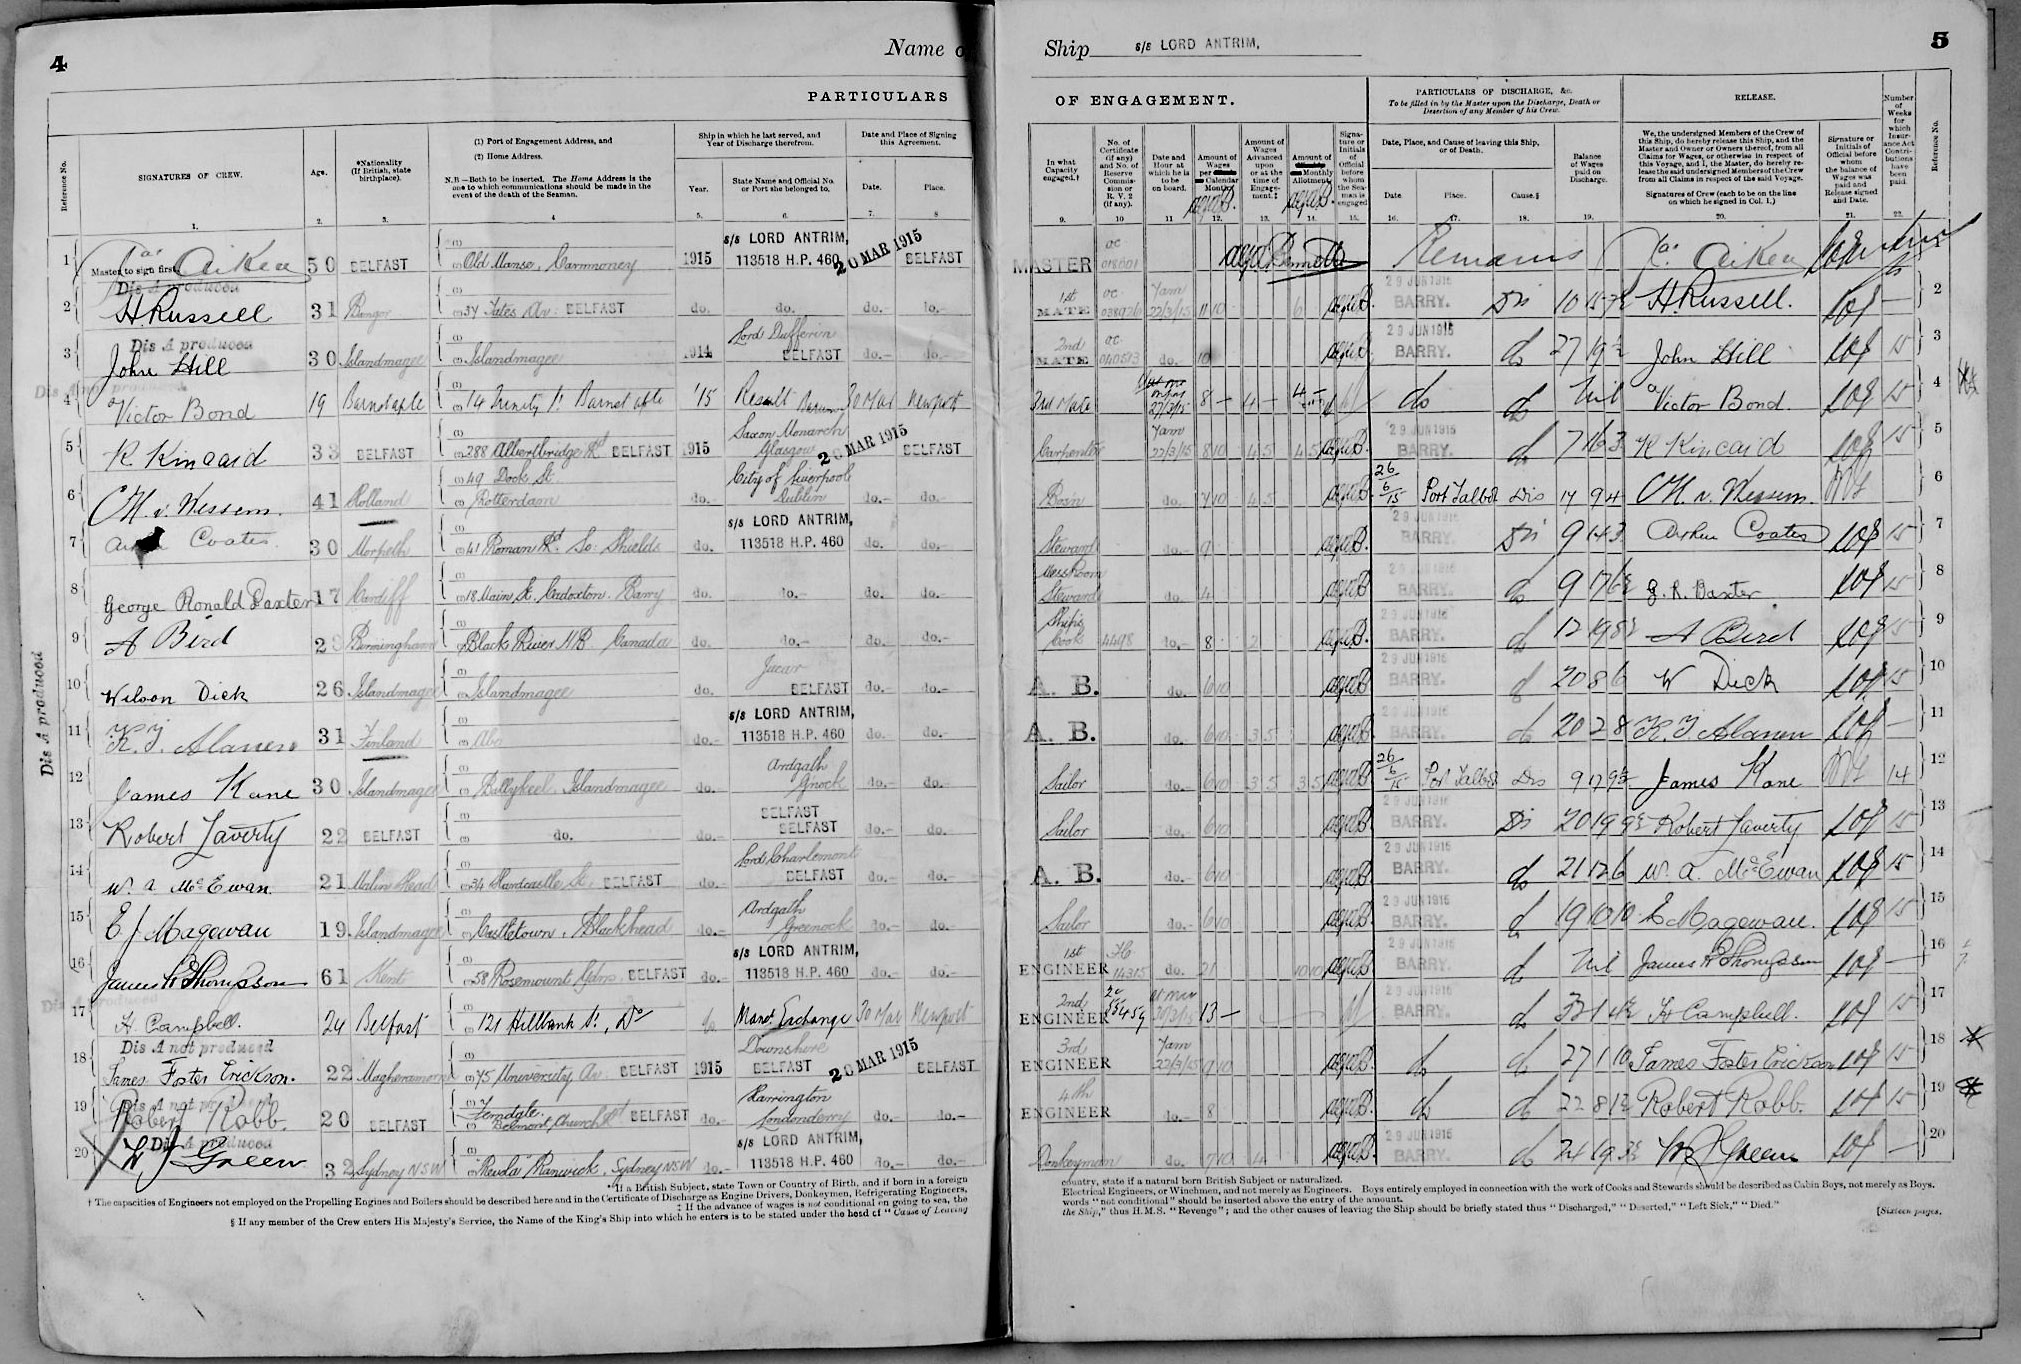 4
Name of
Ship s/s LORD ANTRIM,
5
PARTICULARS
OF ENGAGEMENT.
PARTICULARS OF DISCHARGE, &c.
To be filled in by the Master upon the Discharge, Death or Desertion of any Member of his Crew.
RELEASE.
Reference No.
SIGNATURES OF CREW.
Age.
*Nationality (If British, state birthplace).
(1) Port of Engagement Address, and
(2) Home Address.
N.B.—Both to be inserted. The Home Address is the one to which communications should be made in the event of the death of the Seaman.
Ship in which he last served, and Year of Discharge therefrom.
Year.
State Name and Official No. or Port she belonged to.
Date and Place of Signing this Agreement.
Date.
Place.
In what Capacity engaged.†
No. of Certificate (if any) and No. of Reserve Commission or R.V. 2 (if any).
Date and Hour at which he is to be on board.
Amount of Wages per Calendar Month
Amount of Wages Advanced upon or at the time of Engagement.‡
Amount of Monthly Allotment.
Signature or Initials of Official before whom the Seaman is engaged
Date, Place, and Cause of leaving this Ship, or of Death.
Date
Place.
Cause.§
Balance of Wages paid on Discharge.
We, the undersigned Members of the Crew of this Ship, do hereby release this Ship, and the Master and Owner or Owners thereof, from all Claims for Wages, or otherwise in respect of this Voyage, and I, the Master, do hereby release the said undersigned Members of the Crew from all Claims in respect of the said Voyage.
Signatures of Crew (each to be on the line on which he signed in Col. 1.)
Signature or Initials of Official before whom the balance of Wages was paid and Release signed and Date.
Number of Weeks for which Insurance Act Contributions have been paid.
Reference No.
1. 2. 3. 4 5. 6. 7. 8 9. 10 11 12. 13. 14. 15. 16. 17. 18. 19. 20. 21. 22.
1 Master to sign first Aiken 50 BELFAST Old Manse, Carnmoney 1915 s/s LORD ANTRIM, 113518 H.P. 460 20 MAR 1915 BELFAST MASTER Remains Aiken
Dis A produced
2 H. Russell 31 Bangor 34 Yates Av. BELFAST do. do. do. do. 1st MATE 038926 7am 22/3/15 11 10 6 29 JUN 1915 BARRY. Dis 10 H. Russell. — 2
Dis A produced
3 John Hill 30 Islandmagee Islandmagee 1914 Lord Dufferin BELFAST do. do. 2nd MATE do. 10 29 JUN 1915 BARRY. do 27 19 John Hill 15 3
Dis A not produced
4 Victor Bond 19 Barnstaple 14 Trinity St. Barnstaple '15 Result 30 Mar Newport 3rd Mate 8 — 4 — do do Nil Victor Bond. 15 4
5 R Kincaid 33 BELFAST 288 Albertbridge Rd BELFAST 1915 Saxon Monarch Glasgow 20 MAR 1915 BELFAST Carpenter 7am 22/3/15 8 10 4 5 4 5 29 JUN 1915 BARRY. do 7 16 3 R Kincaid 15 5
6 C H. v. Wessem. 41 Holland 49 Dock St. Rotterdam do. City of Liverpool Dublin do. do. Bosn do. 7 10 4 5 26/6/15 Port Talbot Dis 17 9 4 C H v. Wessem. 6
7 Coates 30 Morpeth 41 Roman Rd. So. Shields do. s/s LORD ANTRIM, 113518 H.P. 460 do. do. Steward do. 9 29 JUN 1915 BARRY. Dis 9 14 3 Arthur Coates 15 7
8 George Ronald Baxter 17 Cardiff 18 Main St. Cadoxton. Barry do. do. do. do. Messroom Steward do. 4 29 JUN 1915 BARRY. do 9 17 6 G. R. Baxter 15 8
9 A Bird Birmingham Black River N.B. Canada do. do. do. do. Ships Cook 4498 do. 8 2 29 JUN 1915 BARRY. do 12 19 8 A Bird 15 9
10 Wilson Dick 26 Islandmagee Islandmagee do. Jucar BELFAST do. do. A. B. do. 6 10 29 JUN 1915 BARRY. do 20 8 6 W Dick 15 10
11 K. J. Alanen 31 Finland Abo do. s/s LORD ANTRIM, 113518 H.P. 460 do. do. A. B. do. 6 10 3 5 29 JUN 1915 BARRY. do 20 2 8 K. J Alanen — 11
12 James Kane 30 Islandmagee Ballykeel Islandmagee do. Ardgath Gnock do. do. Sailor do. 6 10 3 5 3 5 26/6/15 Port Talbot Dis 9 17 9 James Kane 14 12
13 Robert Laverty 22 BELFAST do. do. BELFAST BELFAST do. do. Sailor do. 6 10 29 JUN 1915 BARRY. Dis 20 19 9 Robert Laverty 15 13
14 W. A. McEwan 21 Malin Head 34 Hardcastle St. BELFAST do. Lord Charlemont BELFAST do. do. A. B. do. 6 10 29 JUN 1915 BARRY. do 21 12 6 W. A. McEwan 15 14
15 E J Magowan 19 Islandmagee Castletown, Blackhead do. Ardgath Greenock do. do. Sailor do. 6 10 29 JUN 1915 BARRY. do 19 10 10 E Magowan. 15 15
16 James H Thompson 61 Kent 58 Rosemount Gdns. BELFAST do. s/s LORD ANTRIM, 113518 H.P. 460 do. do. 1st ENGINEER 14315 do. 21 10 10 29 JUN 1915 BARRY. do Nil James H Thompson — 16
Dis A produced
17 H. Campbell. 24 Belfast 121 Hillbank St., Do do Manr. Exchange 30 Mar Newport 2nd ENGINEER 13 — 29 JUN 1915 BARRY. do H Campbell. 15 17
Dis A not produced
18 James Foster Erickson. 22 Magheramorne 75 University Av. BELFAST 1915 Downshire BELFAST 20 MAR 1915 BELFAST 3rd ENGINEER 7am 22/3/15 9 10 do do 27 1 10 James Foster Erickson 15 18
Dis A not produced
19 Robert Robb. 20 BELFAST Ferndale. Belmont Church Rd BELFAST do. Harrington Londonderry do. do. 4th ENGINEER do. 8 do do 22 8 Robert Robb. 15 19
Dis A produced
20 W J Green 32 Sydney NSW Randwick, Sydney NSW do. s/s LORD ANTRIM, 113518 H.P. 460 do. do. Donkeyman do. 7 10 4 29 JUN 1915 BARRY. do 24 19 W J Green — 20
Dis A produced
* If a British Subject, state Town or Country of Birth, and if born in a foreign country, state if a natural born British Subject or naturalized.
† The capacities of Engineers not employed on the Propelling Engines and Boilers should be described here and in the Certificate of Discharge as Engine Drivers, Donkeymen, Refrigerating Engineers, Electrical Engineers, or Winchmen, and not merely as Engineers. Boys entirely employed in connection with the work of Cooks and Stewards should be described as Cabin Boys, not merely as Boys.
‡ If the advance of wages is not conditional on going to sea, the words "not conditional" should be inserted above the entry of the amount.
§ If any member of the Crew enters His Majesty's Service, the Name of the King's Ship into which he enters is to be stated under the head of "Cause of Leaving the Ship," thus H.M.S. "Revenge"; and the other causes of leaving the Ship should be briefly stated thus "Discharged," "Deserted," "Left Sick," "Died."
[Sixteen pages.